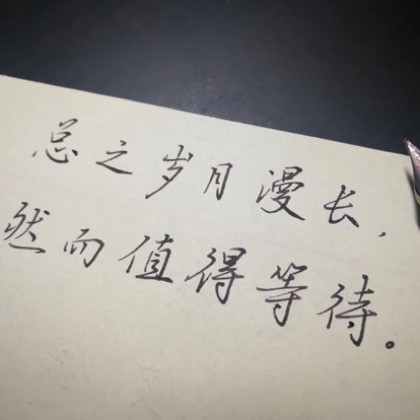 总之岁月漫长,
然而值得等待。